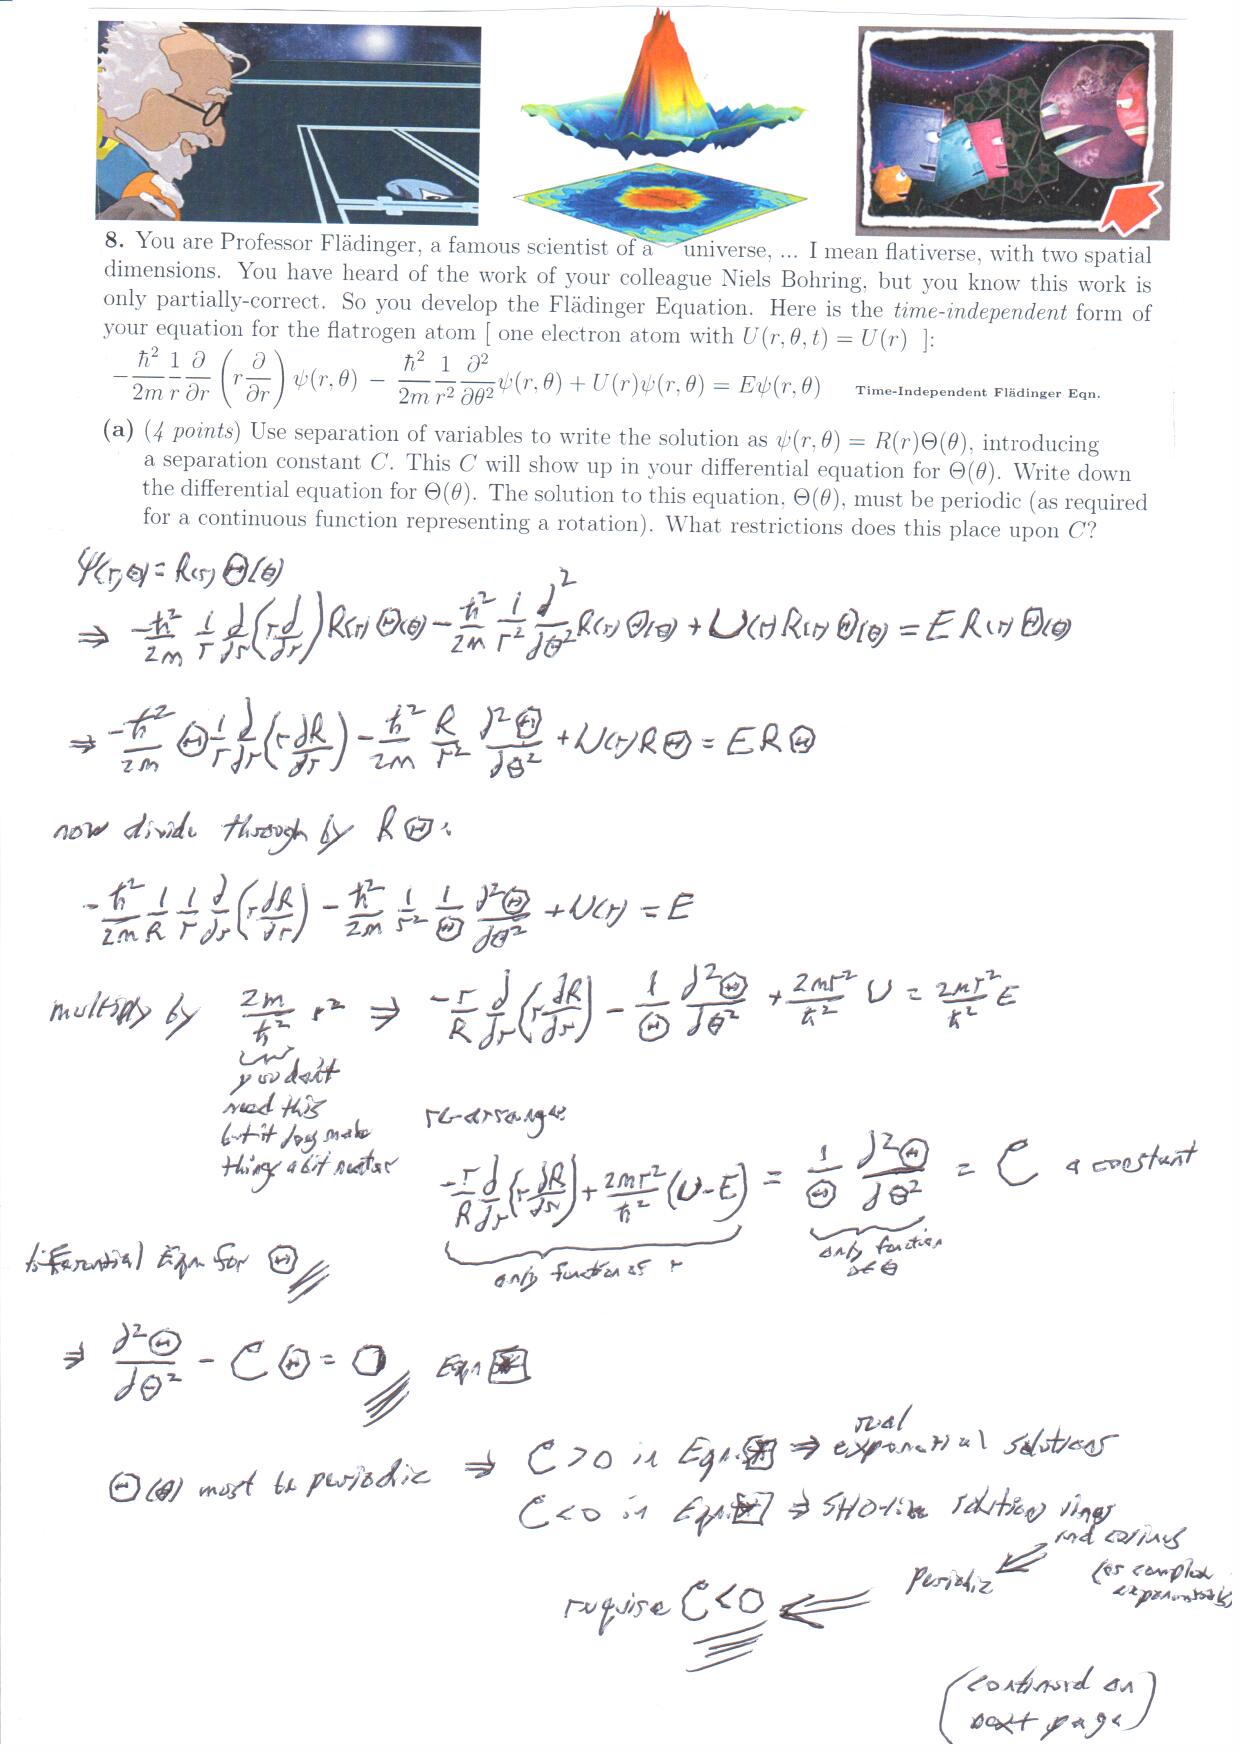 8. You are Professor Flädinger, a famous scientist of a universe, ... I mean flativerse, with two spatial
dimensions. You have heard of the work of your colleague Niels Bohring, but you know this work is
only partially-correct. So you develop the Flädinger Equation. Here is the time-independent form of
your equation for the flatrogen atom [ one electron atom with U(r, θ, t) = U(r) ]:
−ħ²/2m 1/r ∂/∂r (r ∂/∂r) ψ(r, θ) − ħ²/2m 1/r² ∂²/∂θ² ψ(r, θ) + U(r)ψ(r, θ) = Eψ(r, θ) Time-Independent Flädinger Eqn.
(a) (4 points) Use separation of variables to write the solution as ψ(r, θ) = R(r)Θ(θ), introducing
a separation constant C. This C will show up in your differential equation for Θ(θ). Write down
the differential equation for Θ(θ). The solution to this equation, Θ(θ), must be periodic (as required
for a continuous function representing a rotation). What restrictions does this place upon C?
ψ(r,θ) = R(r) Θ(θ)
⇒ −ħ²/2m 1/r d/dr (r d/dr) R(r) Θ(θ) − ħ²/2m 1/r² d²/dθ² R(r) Θ(θ) + U(r) R(r) Θ(θ) = E R(r) Θ(θ)
⇒ −ħ²/2m Θ 1/r d/dr (r dR/dr) − ħ²/2m R/r² d²Θ/dθ² + U(r) R Θ = E R Θ
now divide through by R Θ:
−ħ²/2m 1/R 1/r d/dr (r dR/dr) − ħ²/2m 1/r² 1/Θ d²Θ/dθ² + U(r) = E
multiply by 2m/ħ² r² ⇒ −r/R d/dr (r dR/dr) − 1/Θ d²Θ/dθ² + 2mr²/ħ² U = 2mr²/ħ² E
you don't
need this
but it does make
things a bit neater
re-arrange
−r/R d/dr (r dR/dr) + 2mr²/ħ² (U − E) = 1/Θ d²Θ/dθ² = C a constant
only function of r
only function
of θ
differential Eqn for Θ
⇒ d²Θ/dθ² − C Θ = 0 Eqn *
Θ(θ) must be periodic ⇒ C > 0 in Eqn * ⇒ real exponential solutions
C < 0 in Eqn * ⇒ SHO-like solution sines
and cosines
(or complex
exponentials)
periodic
require C < 0
(continued on
next page)